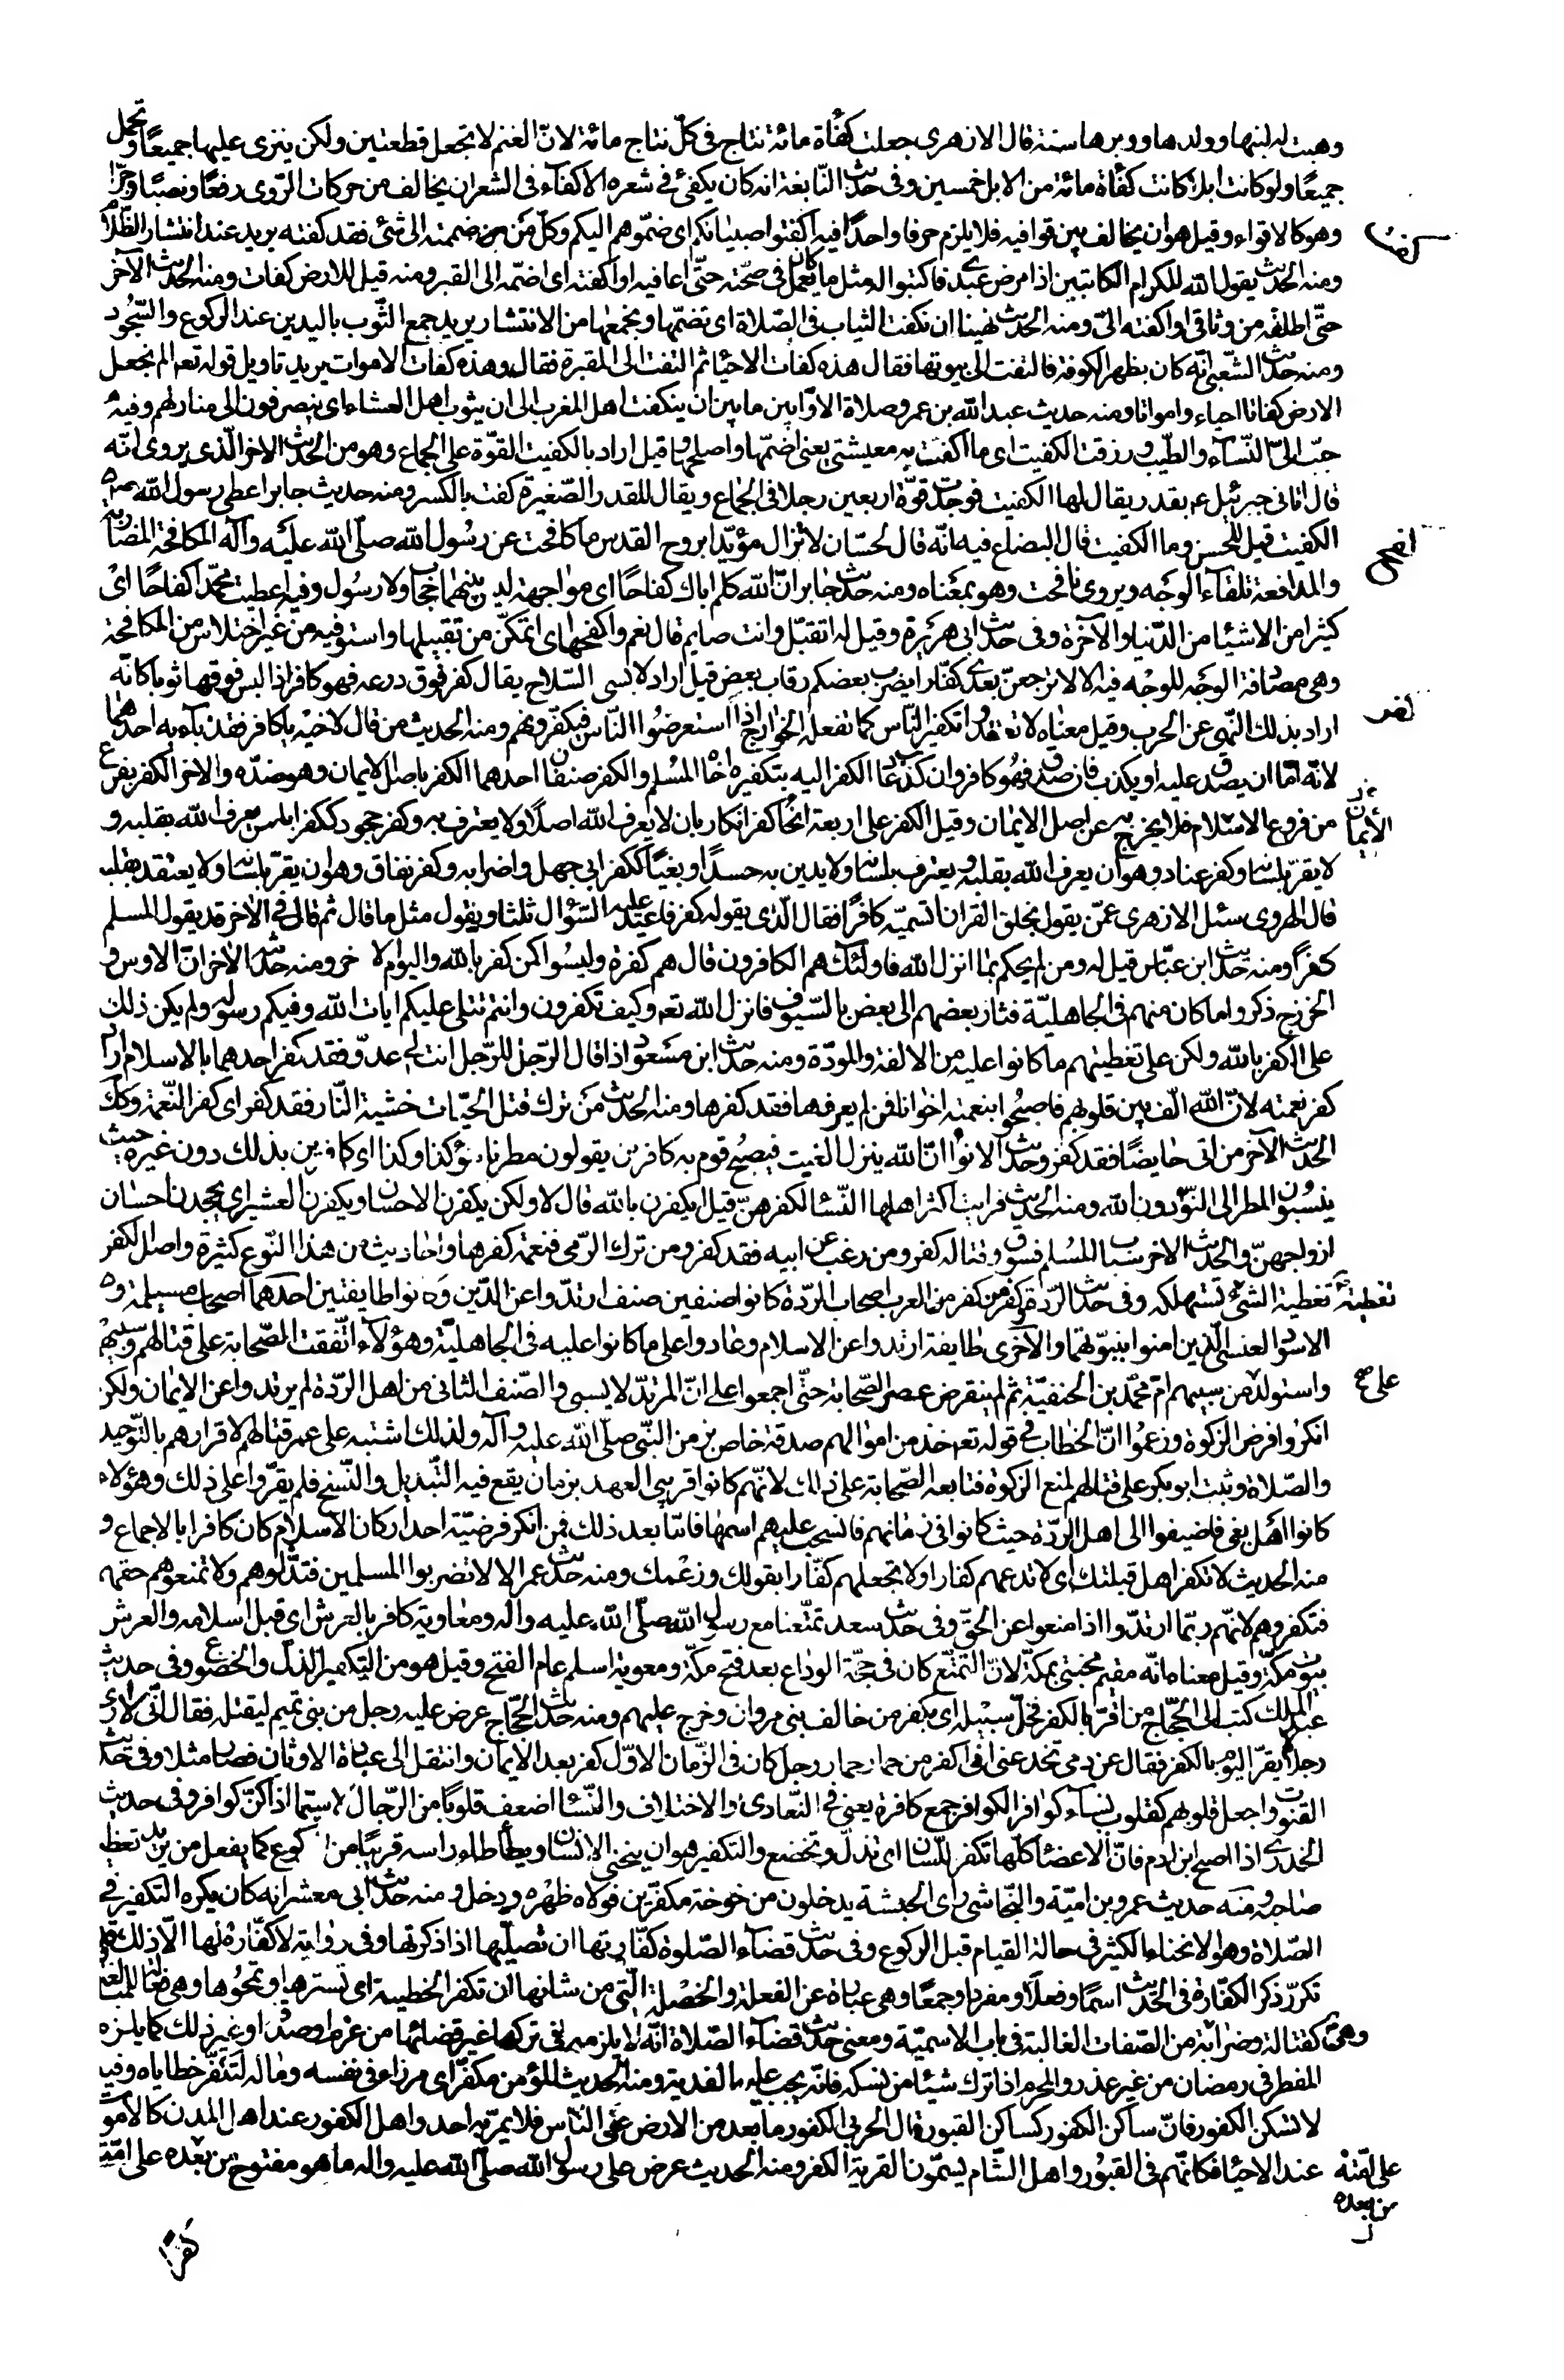 وهبت له لبنها وولدها ووبرها سنة قال الازهرى جعلت كفأة مائة نتاج فى كلّ نتاج مائة لانّ الغنم لا تجعل قطعتين ولكن ينزى عليها جميعًا وتحمل
جميعًا ولو كانت ابلا كانت كفأة مائة من الابل خمسين وفى حديث النّابغة انه كان يكفئ فى شعره الاكفآء فى الشعر ان يخالف من حركات الرّوى رفعًا ونصبًا وجرّا
وهو كالاقواء وقيل هو ان يخالف بين قوافيه فلا يلزم حرفا واحدًا فيه اكفتوا صبيانكم اى ضمّوهم اليكم وكلّ من ضممته الى شئ فقد كفته يريد عند انتشار الظّلام
كفت
ومنه الحديث يقول الله للكرام الكاتبين اذا مرض عبدى فاكتبوا له مثل ما كان يعمل فى صحّته حتّى اعافيه او اكفته اى اضمّه الى القبر ومنه قيل للارض كفات ومنه الحديث الآخر
حتّى اطلقه من وثاقى او اكفته الىّ ومنه الحديث نهينا ان نكفت الثياب فى الصّلاة اى نضمّها ونجمعها من الانتشار يريد جمع الثّوب باليدين عند الركوع والسّجود
ومنه حديث الشّعبى انّه كان بظهر الكوفة فالتفت الى بيوتها فقال هذه كفات الاحيا ثم التفت الى المقبرة فقال وهذه كفات الاموات يريد تاويل قوله تعه الم نجعل
الارض كفاتا احياء وامواتا ومنه حديث عبد الله بن عمر وصلاة الاوّابين ما بين ان ينكفت اهل المغرب الى ان يثوب اهل العشاء اى ينصرفون الى منازلهم وفيه
حبّب الىّ النّسآء والطّيب ورزقت الكفيت اى ما اكفت به معيشتى يعنى اضمّها واصلحها وقيل اراد بالكفيت القوّة على الجماع وهو من الحديث الاخر الّذى يروى انّه
قال اتانى جبرئيل ع بقدر يقال لها الكفيت فوجدت قوّة اربعين رجلا فى الجماع ويقال للقدر الصّغيرة كفت بالكسر ومنه حديث جابر اعطى رسول الله ص
الكفيت قيل للحسن وما الكفيت قال البضاع فيه انّه قال لحسّان لا تزال مؤيّدا بروح القدس ما كافحت عن رسُول الله صلّى الله عليه وآله المكافحة المضاربة
كفح
والمدافعة تلقآء الوجه ويروى نافحت وهو بمعناه ومنه حديث جابر انّ الله كلم اباك كفاحًا اى مواجهة ليس بينهما حجاب ولا رسُول وفيه اعطيت محمّدا كفاحًا اىْ
كثيرا من الاشيئا من الدّنيا والآخرة وفى حديث ابى هريرة وقيل له اتقبّل وانت صايم قال نعم واكفحها اى اتمكّن من تقبيلها واستوفيه من غير اختلاس من المكافحة
وهى مصادفة الوجه للوجه فيه الا لا ترجعنّ بعدى كفّارا يضرب بعضكم رقاب بعض قيل اراد لابسى السّلاح يقال كفر فوق درعه فهو كافر اذا لبس فوقها ثوبا كانّه
كفر
اراد بذلك النّهى عن الحرب وقيل معناه لا تعتقدوا تكفير النّاس كما تفعله الخوارج اذا استعرضُوا النّاس فيكفّرونهم ومنه الحديث من قال لاخيه يا كافر فقد بآء به احدهما
لانّه امّا ان يصدق عليه او يكذب فان صدق فهو كافر وان كذب عاد الكفر اليه بتكفيره اخاه المسْلم والكفر صنفان احدهما الكفر باصل الايمان وهو ضدّه والاخر الكفر بفرع
من فروع الاسْلام فلا يخرج به عن اصل الايمان وقيل الكفر على اربعة انحا كفر انكار بان لا يعرف الله اصلًا ولا يعترف به وكفر جحود ككفر ابليس يعرف الله بقلبه و
الايمان
لا يقرّ بلسانه وكفر عناد وهو ان يعرف الله بقلبه ويعترف بلسانه ولا يدين به حسدًا او بغيًا ككفر ابى جهل واضرابه وكفر نفاق وهو ان يقرّ بلسانه ولا يعتقد بقلبه
قال الهروى سئل الازهرى عمّن يقول بخلق القران اتسميّه كافرًا فقال الّذى يقوله كفر فاعيد عليه السّؤال ثلثا ويقول مثل ما قال ثم قال فى الآخر قد يقول المسلم
كفرًا ومنه حديث ابن عبّاس قيل له ومن لم يحكم بما انزل الله فاولئك هم الكافرون قال هم كفرة وليسُوا كمن كفر بالله واليوم الا خر ومنه حديثه الآخر انّ الاوس و
الخزرج ذكروا ما كان منهم فى الجاهليّة فثار بعضهم الى بعض بالسّيوف فانزل الله تعه وكيف تكفرون وانتم تتلى عليكم ايات الله وفيكم رسوله ولم يكن ذلك
على الكفر بالله ولكن على تغطيتهم ما كانوا عليه من الالفة والمودّة ومنه حديث ابن مسْعود اذا قال الرّجل للرّجل انت لى عدوّ فقد كفر احدهما بالاسلام اراد
كفر نعمته لانّ الله الّف بين قلوبهم فاصبحُوا بنعمته اخوانا فمن لم يعرفها فقد كفرها ومنه الحديث من ترك قتل الحيّات خشية النّار فقد كفر اى كفر النّعمة وكذلك
الحديث الآخر من اتى حايضًا فقد كفر وحديث الانوآ انّ الله ينزل الغيث فيصبح قوم به كافرين يقولون مطرنا بنوء كذا وكذا اى كافرين بذلك دون غيره حيث
ينسُبون المطر الى النّوء دون الله ومنه الحديث فرايت اكثر اهلها النّسا لكفرهنّ قيل ايكفرن بالله قال لا ولكن يكفرن الاحسان ويكفرن العشير اى يجحدن احسان
ازواجهنّ والحديث الاخر سباب المسْلم فسوق وقتاله كفر ومن رغب عن ابيه فقد كفر ومن ترك الرّمى فنعمة كفرها واحاديث من هذا النّوع كثيرة واصل الكفر
تغطية الشئ تستهلكه وفى حديث الرّدة وكفر من كفر من العرب اصحاب الردّة كانوا صنفين صنف ارتدّوا عن الدّين وكانوا طايفتين احدهما اصحاب مسيلمة و
تغطية
الاسود العنسى الّذين امنوا بنبوّتهما والآخرى طايفة ارتدوا عن الاسلام وعادوا على ما كانوا عليه فى الجاهليّة وهؤلآء اتّفقت الصّحابة على قتالهم وسبيهم
واستولد من سبيهم امّ محمّد بن الحنفيّة ثم لم ينقرض عصر الصّحابة حتّى اجمعوا على انّ المرتدّ لا يسبى والصّنف الثانى من اهل الرّدة لم يرتدوا عن الايمان ولكن
على صح
انكرُوا فرض الزكوة وزعمُوا انّ الخطاب فى قوله تعه خذ من اموالهم صدقة خاص بزمن النّبى صلّى الله عليه وآله ولذلك اشتبه على عمر قتالهم لاقرارهم بالتّوحيد
والصّلاة وثبت ابو بكر على قتالهم لمنع الزكوة فتابعه الصّحابة على ذلك لانّهم كانوا قريبى العهد بزمان يقع فيه التّبديل والنّسخ فلم يقرّوا على ذلك وهؤلاء
كانوا اهل بغى فاضيفوا الى اهل الردّة حيث كانوا فى زمانهم فانسحب عليهم اسمها فامّا بعد ذلك فمن انكر فرضيّة احد اركان الاسلام كان كافرا بالاجماع و
منه الحديث لا تكفر اهل قبلتك اى لا تدعهم كفارا ولا تجعلهم كفّارا بقولك وزعْمك ومنه حديث عمر الا لا تضربوا المسلمين فتذلّوهم ولا تمنعوهم حقهم
فتكفروهم لانّهم ربّما ارتدّوا اذا منعوا عن الحقّ وفى حديث سعد تمتّعنا مع رسول الله صلّى الله عليه واله ومعاوية كافر بالعرش اى قبل اسلامه والعرش
بيوت مكّة وقيل معناه انّه مقيم مختبئ بمكّة لانّ التمتّع كان فى حجّة الوداع بعد فتح مكّة ومعوية اسلم عام الفتح وقيل هو من التكفير الذلّ والخضوع وفى حديث
عبد الملك كتب الى الحجّاج من اقرّ بالكفر فخلّ سبيله اى بكفر من خالف بنى مروان وخرج عليهم ومنه حديث الحجّاج عرض عليه رجل من بنى تميم ليقتله فقال انّى لارى
رجلا لا يقرّ اليوم بالكفر فقال عن دمى تخدعنى انّى اكفر من حمار حمار رجل كان فى الزّمان الاوّل كفر بعد الايمان وانتقل الى عبادة الاوثان فصار مثلا وفى حديث
القنوت واجعل قلوبهم كقلوب نسآء كوافر الكوافر جمع كافرة يعنى فى التّعادى والاختلاف والنّسا اضعف قلوبًا من الرّجال لا سيّما اذا كنّ كوافر وفى حديث
الخدرى اذا اصبح ابن ادم فانّ الاعضا كلّها تكفر للّسان اى تذلّ وتخضع والتكفير هو ان ينحنى الانسان ويطأطاء راسه قريبًا من الركوع كما يفعل من يريد تعظيم
صاحبه ومنه حديث عمرو بن اميّة والنّجاشى راى الحبشة يدخلون من خوخة مكفّرين فولاه ظهره ودخل ومنه حديث ابى معشر انه كان يكره التكفير فى
الصّلاة وهو الانحناء الكثير فى حالة القيام قبل الركوع وفى حديث قضآء الصّلوة كفّارتها ان تصلّيها اذا ذكرتها وفى رواية لا كفّارة لها الّا ذلك قد
تكرّر ذكر الكفّارة فى الحديث اسمًا وفعلًا ومفردا وجمعًا وهى عبارة عن الفعلة والخصْلة الّتى من شانها ان تكفر الخطيئة اى تسترها وتمحُوها وهى فعّالة للمبالغة
كقتالة وضرّابة من الصّفات الغالبة فى باب الاسميّة ومعنى حديث قضآء الصّلاة انّه لا يلزمه فى تركها غير قضائها من غرم او صدقة او غير ذلك كما يلزم
وهى
المفطر فى رمضان من غير عذر والمحرم اذا ترك شيئا من نسكه فانّه يجب عليه الفدية ومنه الحديث المؤمن مكفّر اى مرزاء فى نفسه وماله لتكفّر خطاياه وفيه
لا تسكن الكفور فانّ ساكن الكفور كساكن القبور قال الحربى الكفور ما بعد من الارض عن النّاس فلا يمرّ به احد واهل الكفور عند اهل المدن كالاموات
عند الاحيا فكانّهم فى القبُور واهل الشّام يسمّون القرية الكفر ومنه الحديث عرض على رسول الله صلّى الله عليه واله ما هو مفتوح من بعده على امّته
على امّته
من بعده
كفرا